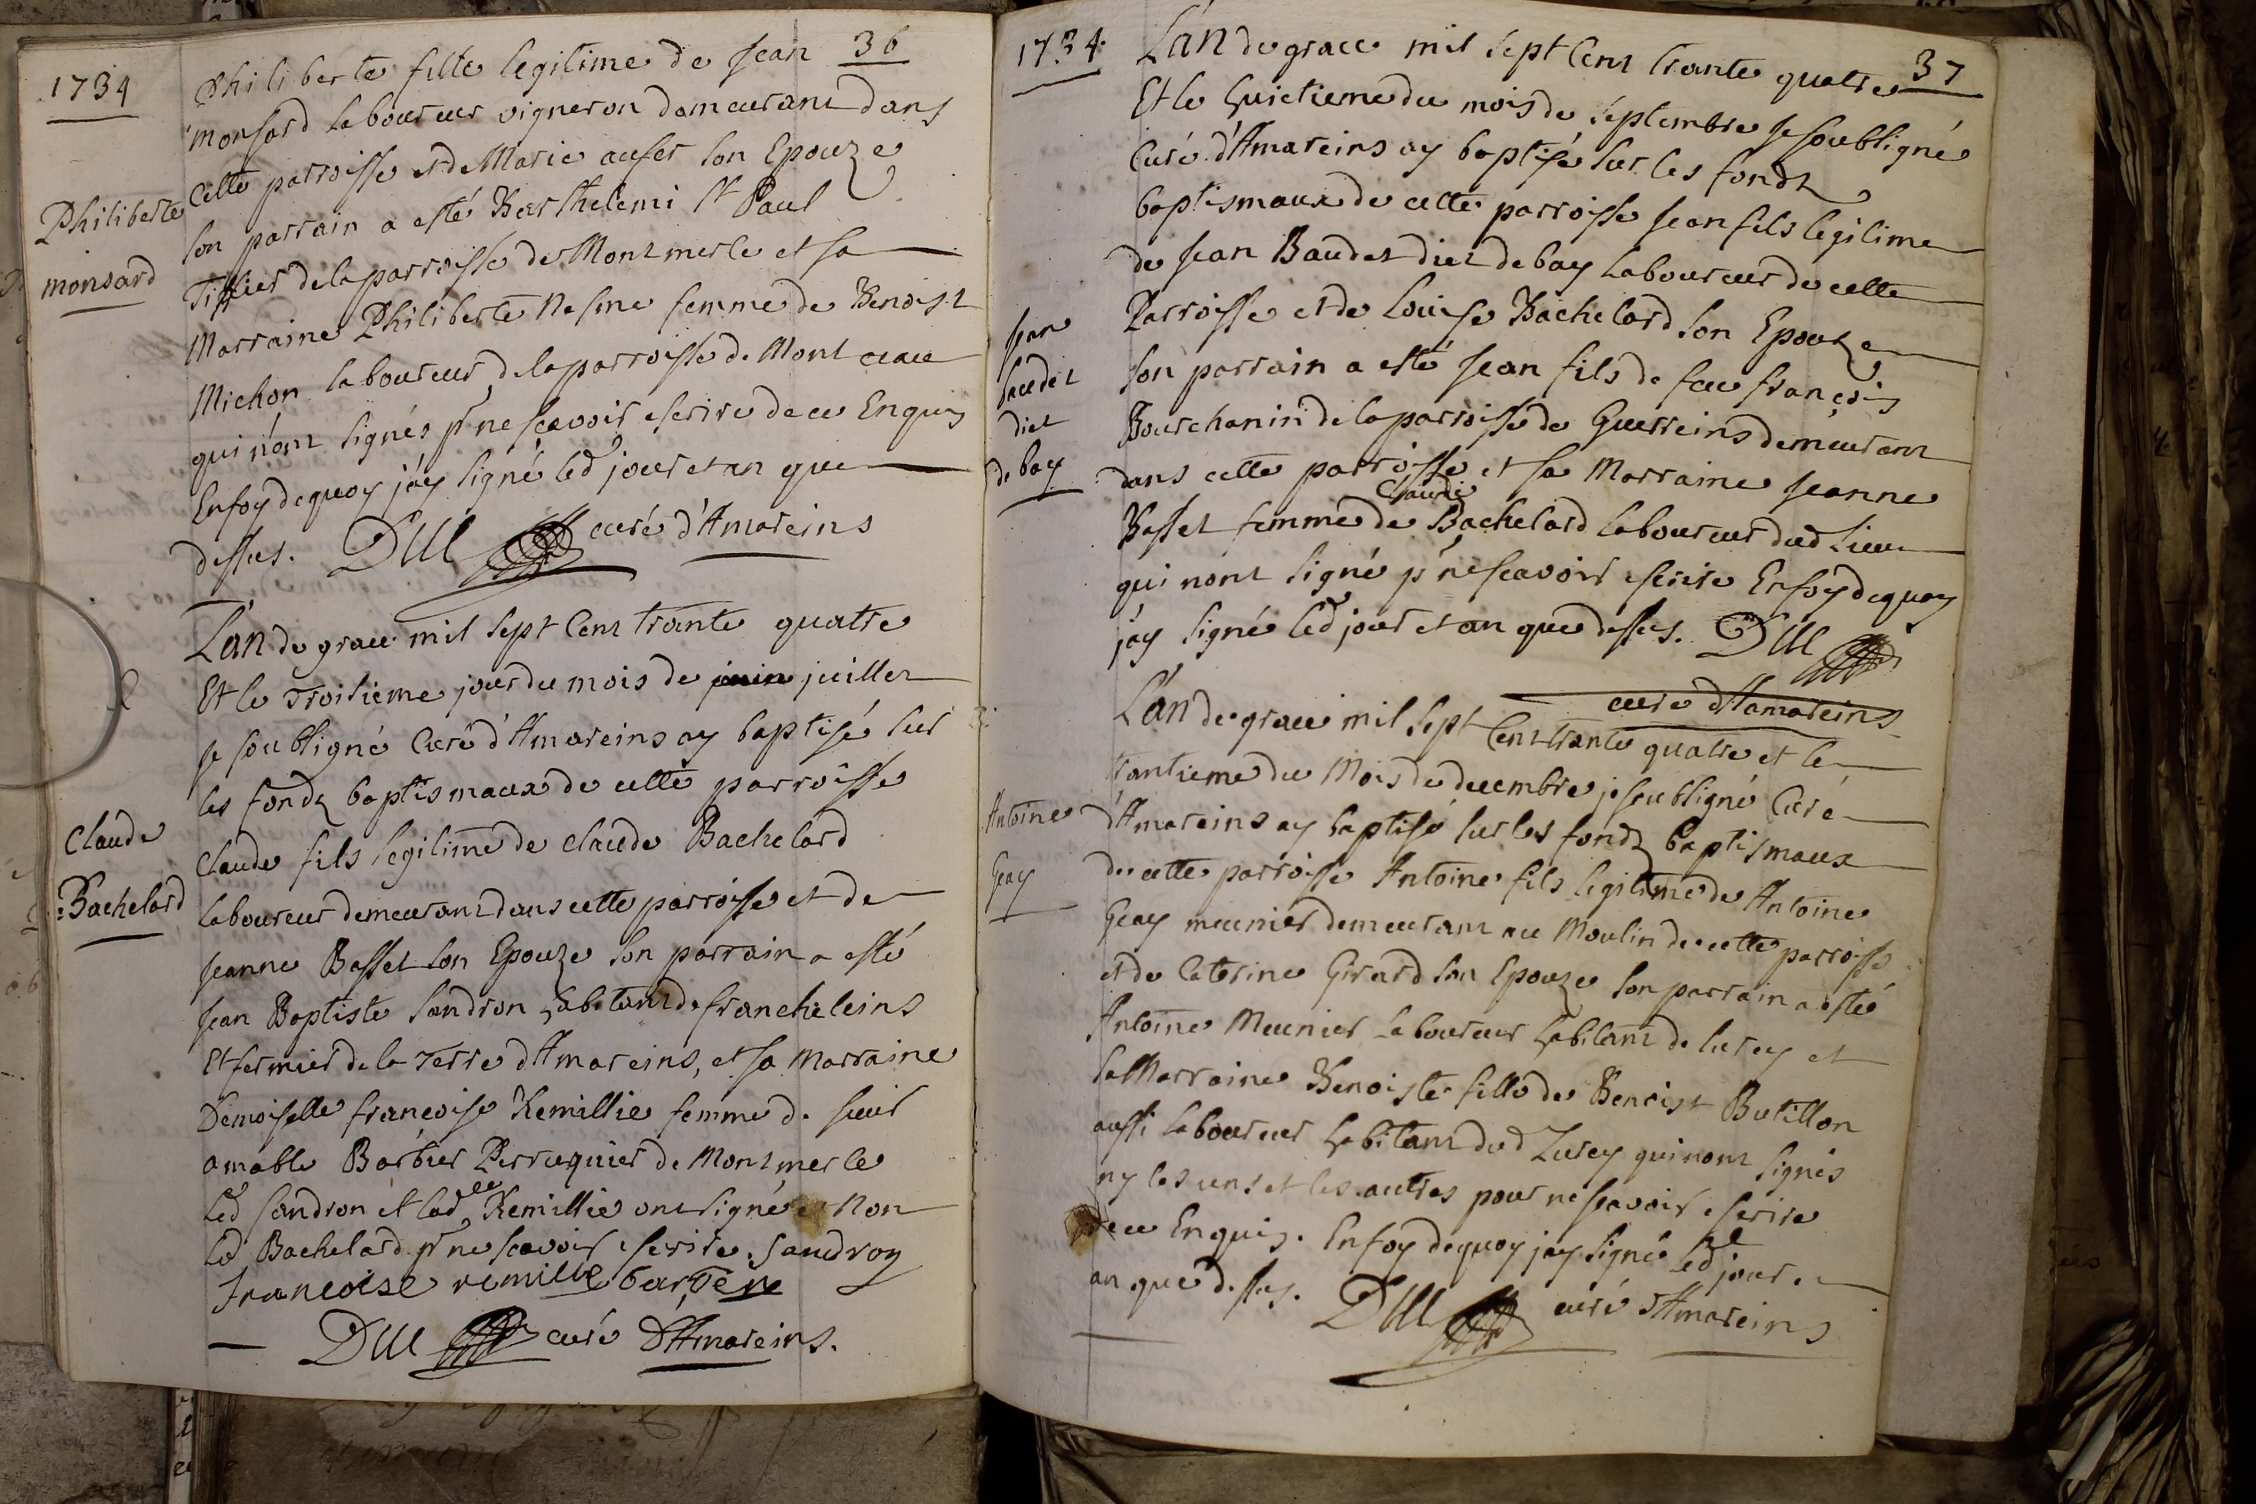 1734
36
Philiberte fille legitime de Jean
monsard laboureur vigneron demeurant dans
cette parroisse et de Marie aufer son Epouze
son parrain a esté Barthelemi St Paul
Tissier de la parroisse de Montmerle et sa
Marraine Philiberte Nesme femme de Benoist
Michon laboureur de la parroisse de Montceau
qui n'ont signés pr ne scavoir escrire de ce Enquis
En foy de quoy j'ay signé led jour et an que
dessus. curé d'Amareins
Philiberte
monsard
L'an de grace mil sept Cent trante quatre
Et le Troisieme jour du mois de juin juillet
je soubsigné Curé d'Amareins ay baptisé sur
les fondz baptismaux de cette parroisse
Claude fils legitime de Claude Bachelard
laboureur demeurant dans cette parroisse et de
Jeanne Basset son Epouze son parrain a esté
Jean Baptiste Sandron habitant de francheleins
Et fermier de la Terre d'Amareins, et sa Marraine
Demoiselle francoise Remillie femme de sieur
amable Barbier Perruquier de Montmerle
Led Sandron et lad lle Remillie ont signé et Non
led Bachelard pr ne scavoir escrire. Sandron
francoise remillie barbere
curé D'Amareins.
Claude
Bachelard
1734.
37
L'an de grace mil sept Cent trante quatre
Et le huictieme du mois de septembre je soubsigné
Curé d'Amareins ay baptisé sur les fondz
baptismaux de cette parroisse Jean fils legitime
de Jean Baudet dict debay laboureur de cette
Parroisse et de Louise Bachelard son Epouze
son parrain a esté Jean fils de feu françois
Bourchanin de la parroisse de Guerreins demeurant
dans cette parroisse et sa Marraine Jeanne
Basset femme de Claude Bachelard laboureur dud lieu
qui n'ont signé pr ne scavoir escrire En foy de quoy
j'ay signé led jour et an que dessus.
curé d'Hamareins
Jean
baudet
dict
debay
L'an de grace mil sept Cent trante quatre et le
trantieme du Mois de decembre je soubsigné Curé
d'Amareins ay baptisé sur les fondz baptismaux
de cette parroisse Antoine fils legitime de Antoine
Geay meunier demeurant au Moulin de cette parroisse
et de Caterine Girard son Epouze son parrain a esté
Antoine Meunier laboureur habitant de lurcy et
sa Marraine Benoiste fille de Benoist Butillon
aussi laboureur habitant dud Lurcy qui n'ont signés
ny les uns et les autres pour ne scavoir escrire
de ce Enquis. En foy de quoy j'ay signé led jour et
an que dessus. curé d'Amareins
Antoine
Geay